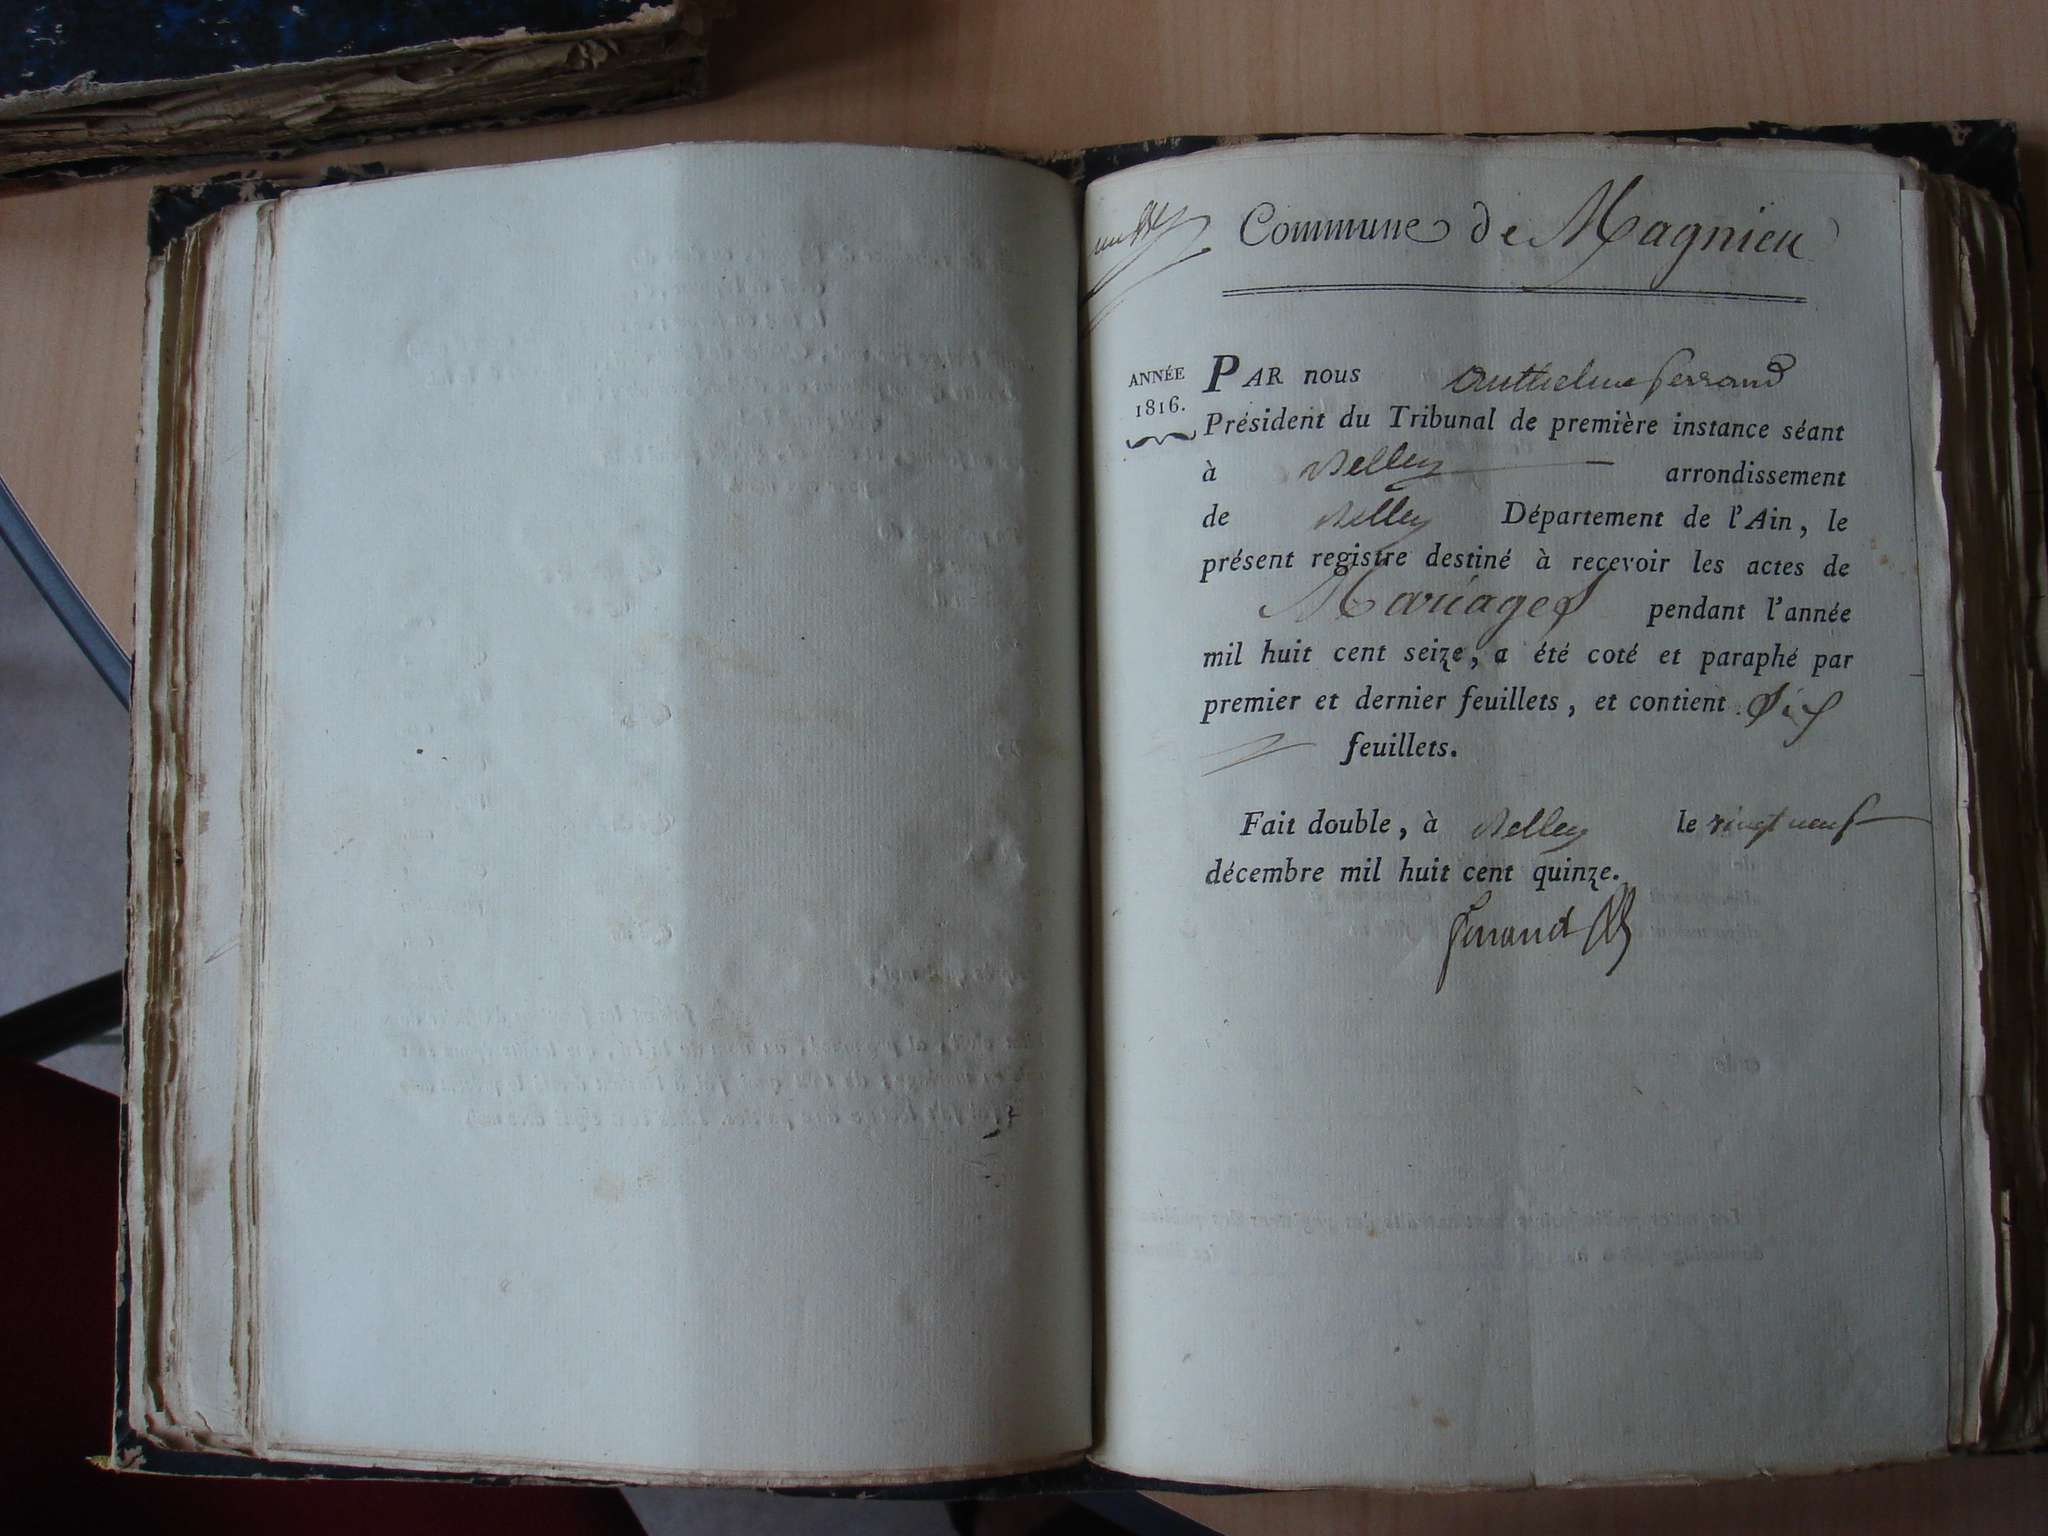 Commune de Magnieu
ANNÉE
1816.
PAR nous Anthelme ferrand
Président du Tribunal de première instance séant
à Belley arrondissement
de Belley Département de l'Ain, le
présent registre destiné à recevoir les actes de
Mariages pendant l'année
mil huit cent seize, a été coté et paraphé par
premier et dernier feuillets, et contient Six
feuillets.
Fait double, à Belley le vingt neuf
décembre mil huit cent quinze.
ferrand